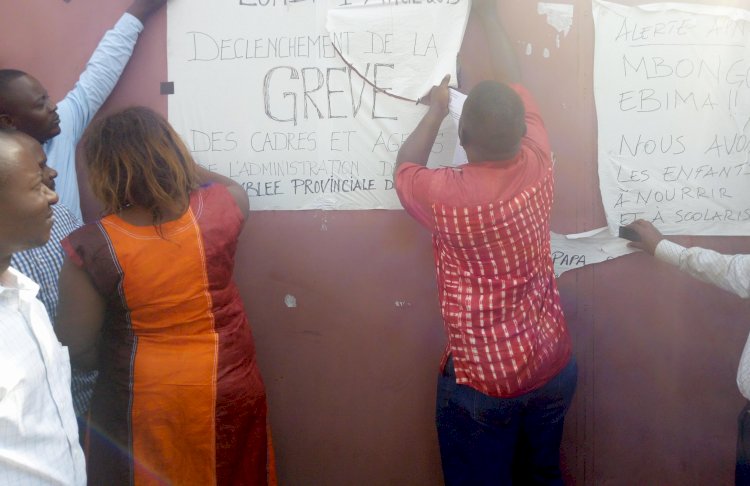 DECLENCHEMENT DE LA
GREVE
DES CADRES ET
DE L'ADMINISTRATION
PROVINCIALE
ALERTE
MBONG
EBIMA !!
NOUS AVO
LES ENFANT
À NOURRIR
ET A SCOLARIS
PAPA